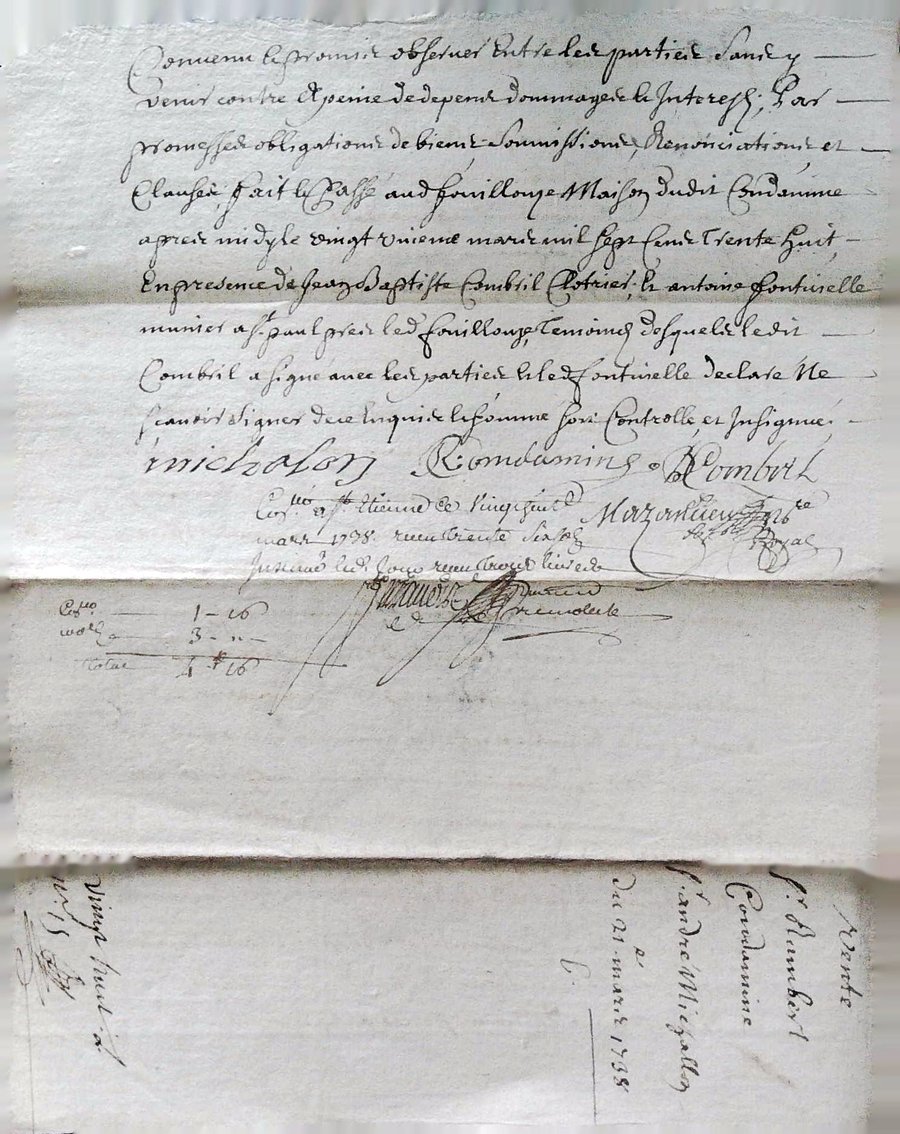 Convenu & promis observer Entre les parties Sans y
venir contre A peine de depens dommages & Interests, Par
promesses obligations de biens Soumissions, Renonciations et
Clauses, fait & Passé aud fouillouze Maison dudit Condamine
apres midy le vingt unieme mars mil Sept Cens Trente Huit
En presence de Jean Baptiste Combril Clotrier, & antoine fontvielle
munier a St. paul pres led fouillouze, Temoins desquels ledit
Combril a signé avec les parties & led fontvielle declaré Ne
scavoir signer de ce Enquis & sommé soit Controllé, et Insignué
michalon Condamine Combril
Con.llé a St. Etienne ce vingthuit Mazanieu nre
mars 1738 receu trente six sols Royal
Insinué led. jour receu trois livres
Con.lle 1 - 16
3 - " -
total 4 - 16
Vente
Sr. Rambert
Condamine
Sr. andré Michallon
Du 21e mars 1738
vingt huit
n.o 15